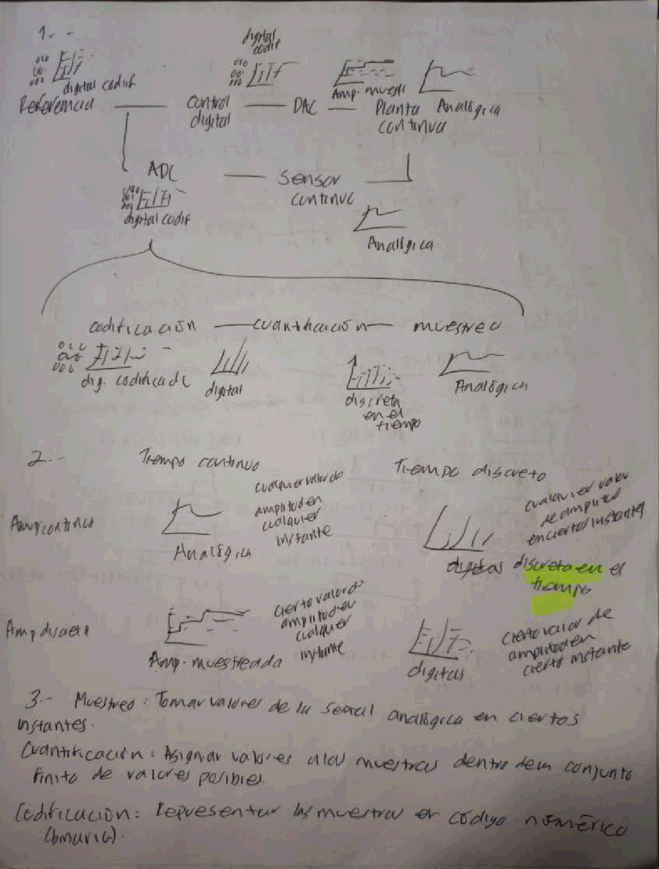 1.-
digital
codif
010
001
000
010
001
000
digital codif
Amp-muestr
Referencia control DAC Planta Analógica
digital continua
ADC sensor
continuo
digital codif
Analógica
codificación cuantificación muestreo
dig. codificada digital discreta Analógica
en el
tiempo
2.- Tiempo continuo Tiempo discreto
Amp continua
cualquier valor de
amplitud en
cualquier
instante
Analógica
cualquier valor
de amplitud
en ciertos instantes
discreta en el
tiempo
Amp discreta
cierto valor de
amplitud en
cualquier
instante
Amp-muestreada
cierto valor de
amplitud en
cierto instante
digital
3.- Muestreo: Tomar valores de la señal analógica en ciertos
instantes.
Cuantificación: Asignar valores a las muestras dentro de un conjunto
finito de valores posibles.
Codificación: Representar las muestras en código numérico
(binario).